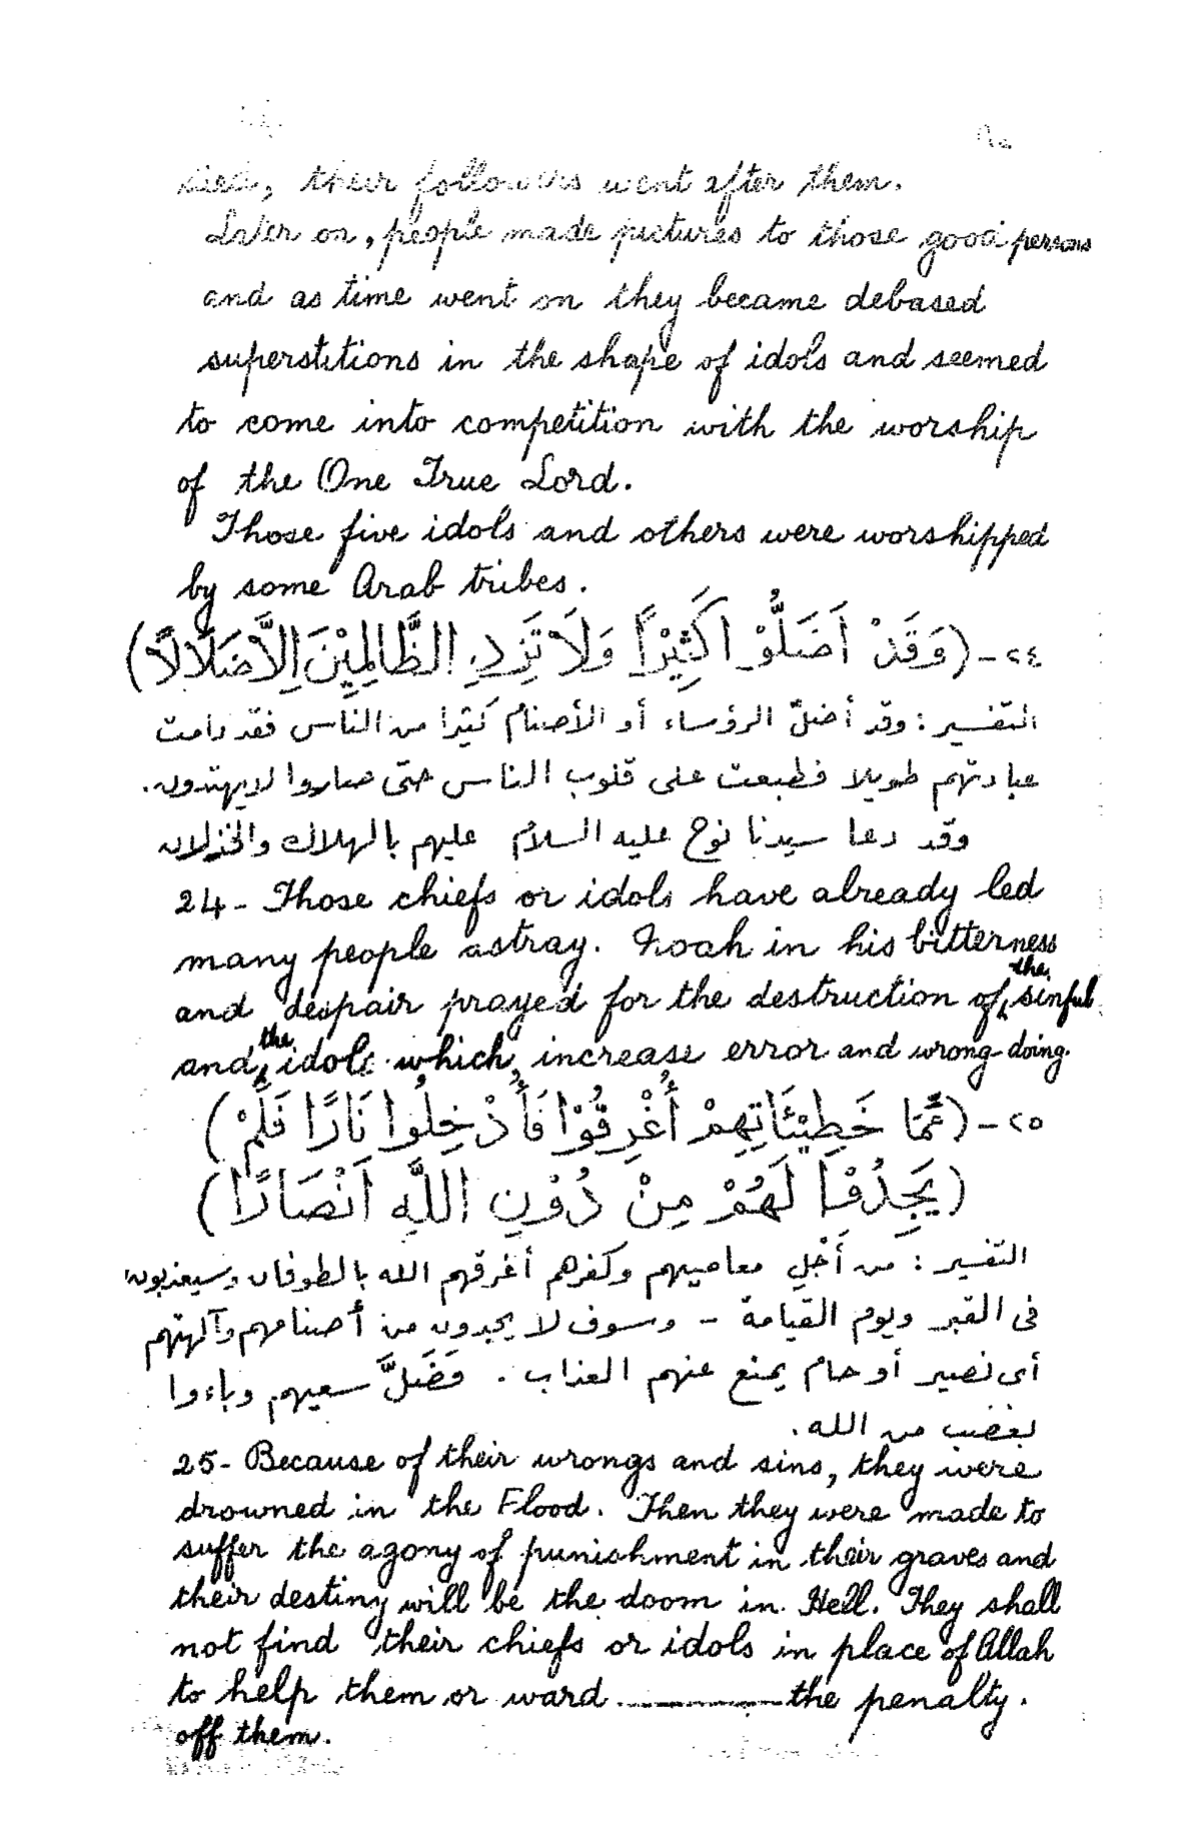 died, their followers went after them.
Later on, people made pictures to those good persons
and as time went on they became debased
superstitions in the shape of idols and seemed
to come into competition with the worship
of the One True Lord.
Those five idols and others were worshipped
by some Arab tribes.
٢٤ - (وَقَدْ أَضَلُّوْا كَثِيْرًا وَلَا تَزِدِ الظَّالِمِيْنَ إِلَّا ضَلَالًا)
التفسير : وقد أضلّ الرؤساء أو الأصنام كثيرا من الناس فقد دامت
عبادتهم طويلا فطبعت على قلوب الناس حتى صاروا لايهتدون.
وقد دعا سيدنا نوح عليه السلام عليهم بالهلاك والخذلان
24 - Those chiefs or idols have already led
many people astray. Noah in his bitterness
and despair prayed for the destruction of the sinful
and the idols which increase error and wrong-doing.
٢٥ - (مِّمَّا خَطِيْئَاتِهِمْ أُغْرِقُوْا فَأُدْخِلُوا نَارًا فَلَمْ)
(يَجِدُوْا لَهُمْ مِنْ دُوْنِ اللَّهِ أَنْصَارًا)
التفسير : من أَجْلِ معاصيهم وكفرهم أغرقهم الله بالطوفان وسيعذبون
فى القبر ويوم القيامة - وسوف لا يجدون من أصنامهم وآلهتهم
أى نصير أو حام يمنع عنهم العذاب . فَضَلَّ سعيهم وباءوا
بغضب من الله.
25- Because of their wrongs and sins, they were
drowned in the Flood. Then they were made to
suffer the agony of punishment in their graves and
their destiny will be the doom in Hell. They shall
not find their chiefs or idols in place of Allah
to help them or ward ________ the penalty.
off them.